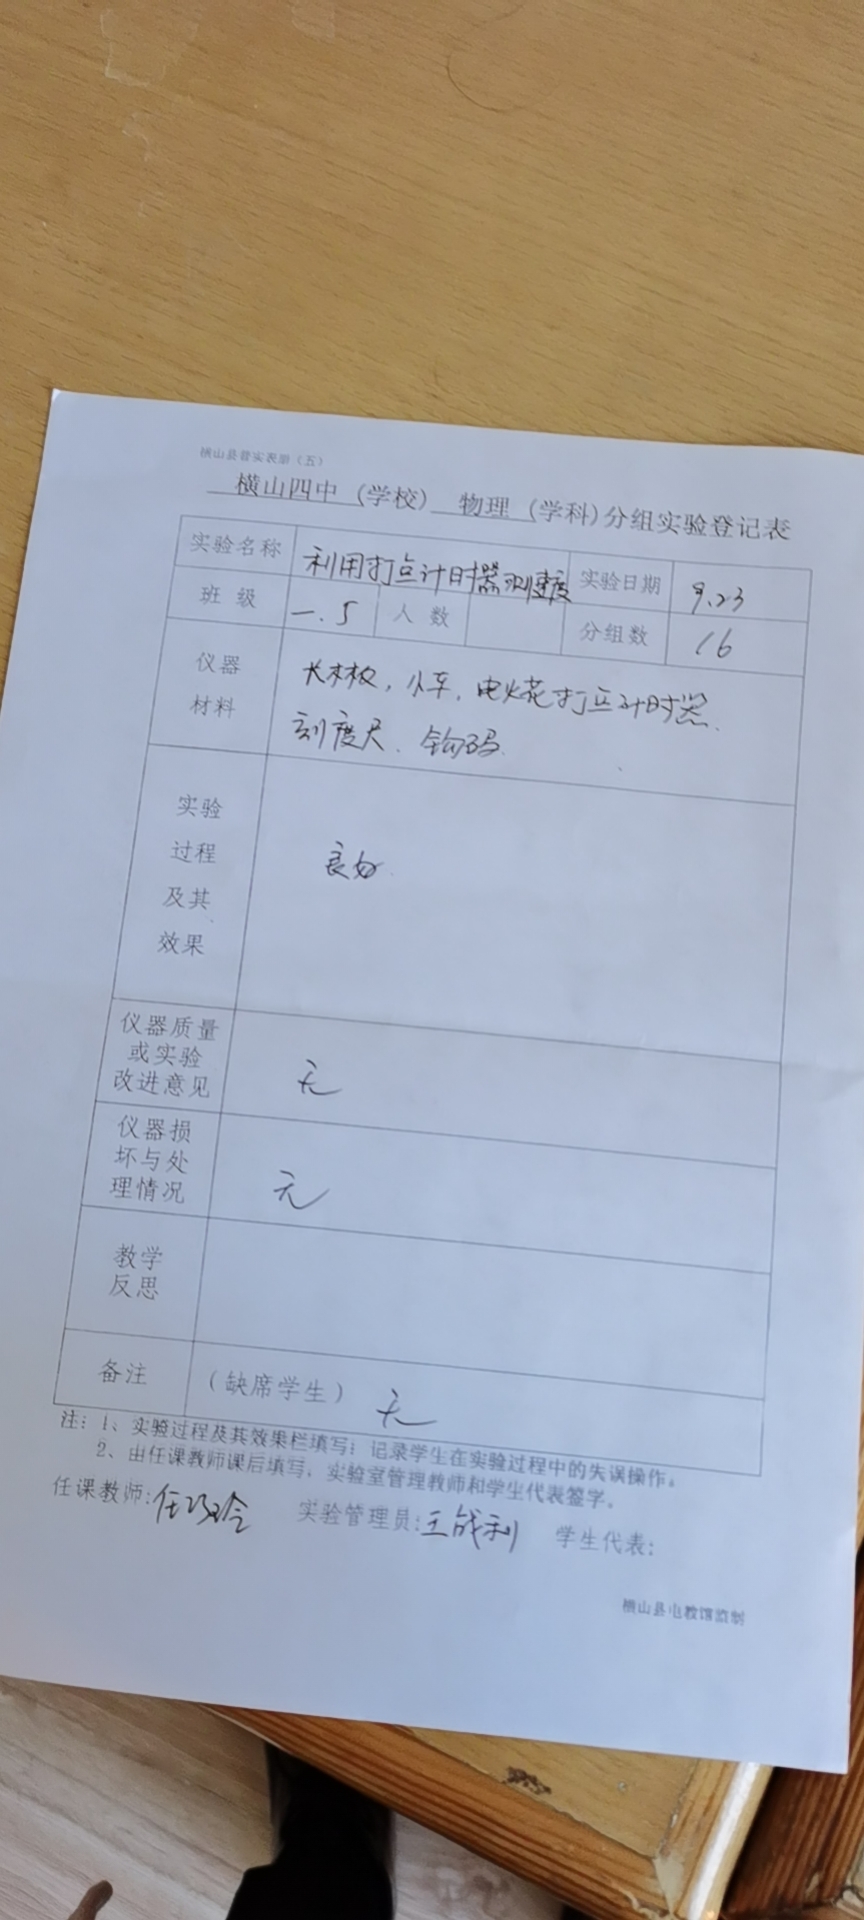 横山县普实表册（五）
横山四中（学校） 物理（学科）分组实验登记表
实验名称 利用打点计时器测速度 实验日期 9.23
班级 一.5 人数 分组数 16
仪器 长木板，小车，电火花打点计时器、
材料 刻度尺、钩码
实验 过程 及其 效果 良好
仪器质量
或实验
改进意见 无
仪器损
坏与处
理情况 无
教学
反思
备注 （缺席学生） 无
注：1、实验过程及其效果栏填写：记录学生在实验过程中的失误操作。
2、由任课教师课后填写，实验室管理教师和学生代表签字。
任课教师: 实验管理员:王战利 学生代表:
横山县电教馆监制